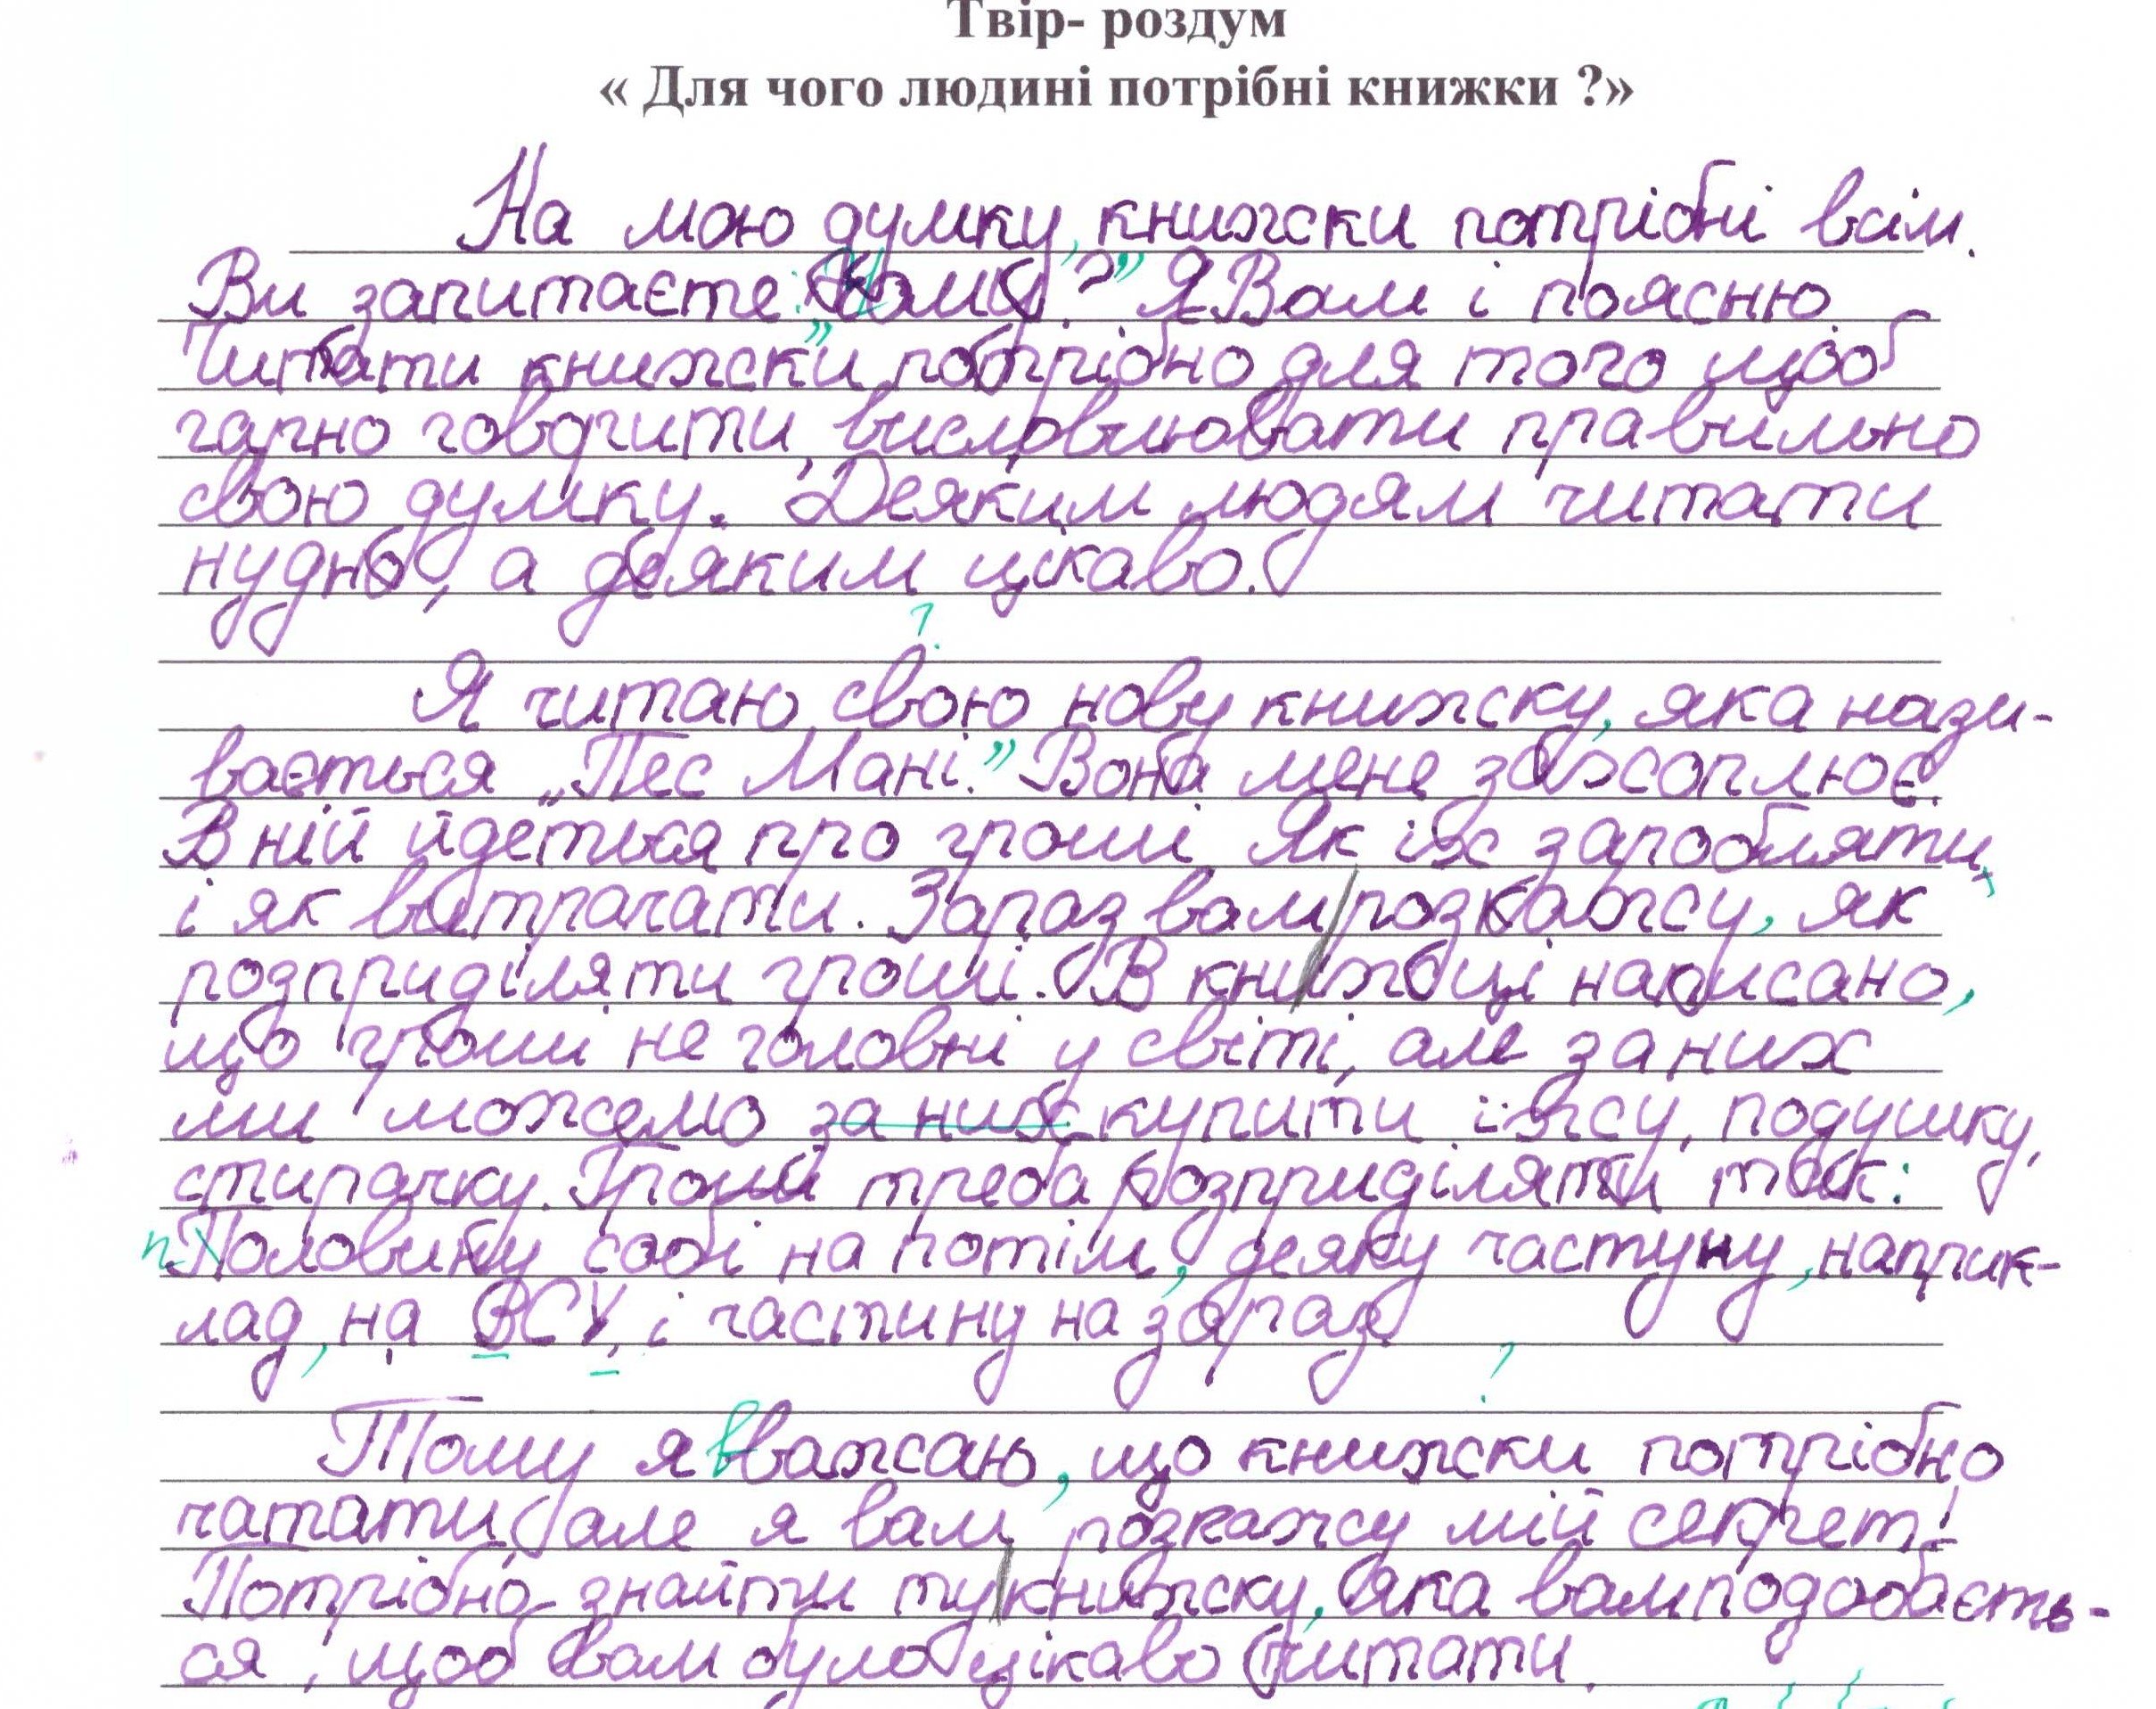 Твір- роздум
« Для чого людині потрібні книжки ?»
На мою думку, книжки потрібні всім.
Ви запитаєте: „Чому?” Я Вам і поясню.
Читати книжки потрібно для того щоб
гарно говорити, висловлювати правильно
свою думку. Деяким людям читати
нудно, а деяким цікаво.
?
Я читаю свою нову книжку, яка нази-
вається „Пес Мані.” Вона мене захоплює.
В ній йдеться про гроші. Як їх заробляти,
і як витрачати. Зараз вам розкажу, як
розприділяти гроші. В книжці написано,
що гроші не головні у світі, але за них
ми можемо за них купити їжу, подушку,
стирачку. Гроші треба розприділяти так:
п Половину собі на потім, деяку частуну, наприк-
лад, на ВСУ, і частину на зараз
?
Тому я вважаю, що книжки потрібно
чатати, але я вам розкажу мій секрет!
Потрібно знайти ту книжку, яка вам подобаєть-
ся, щоб вам було цікаво читати.